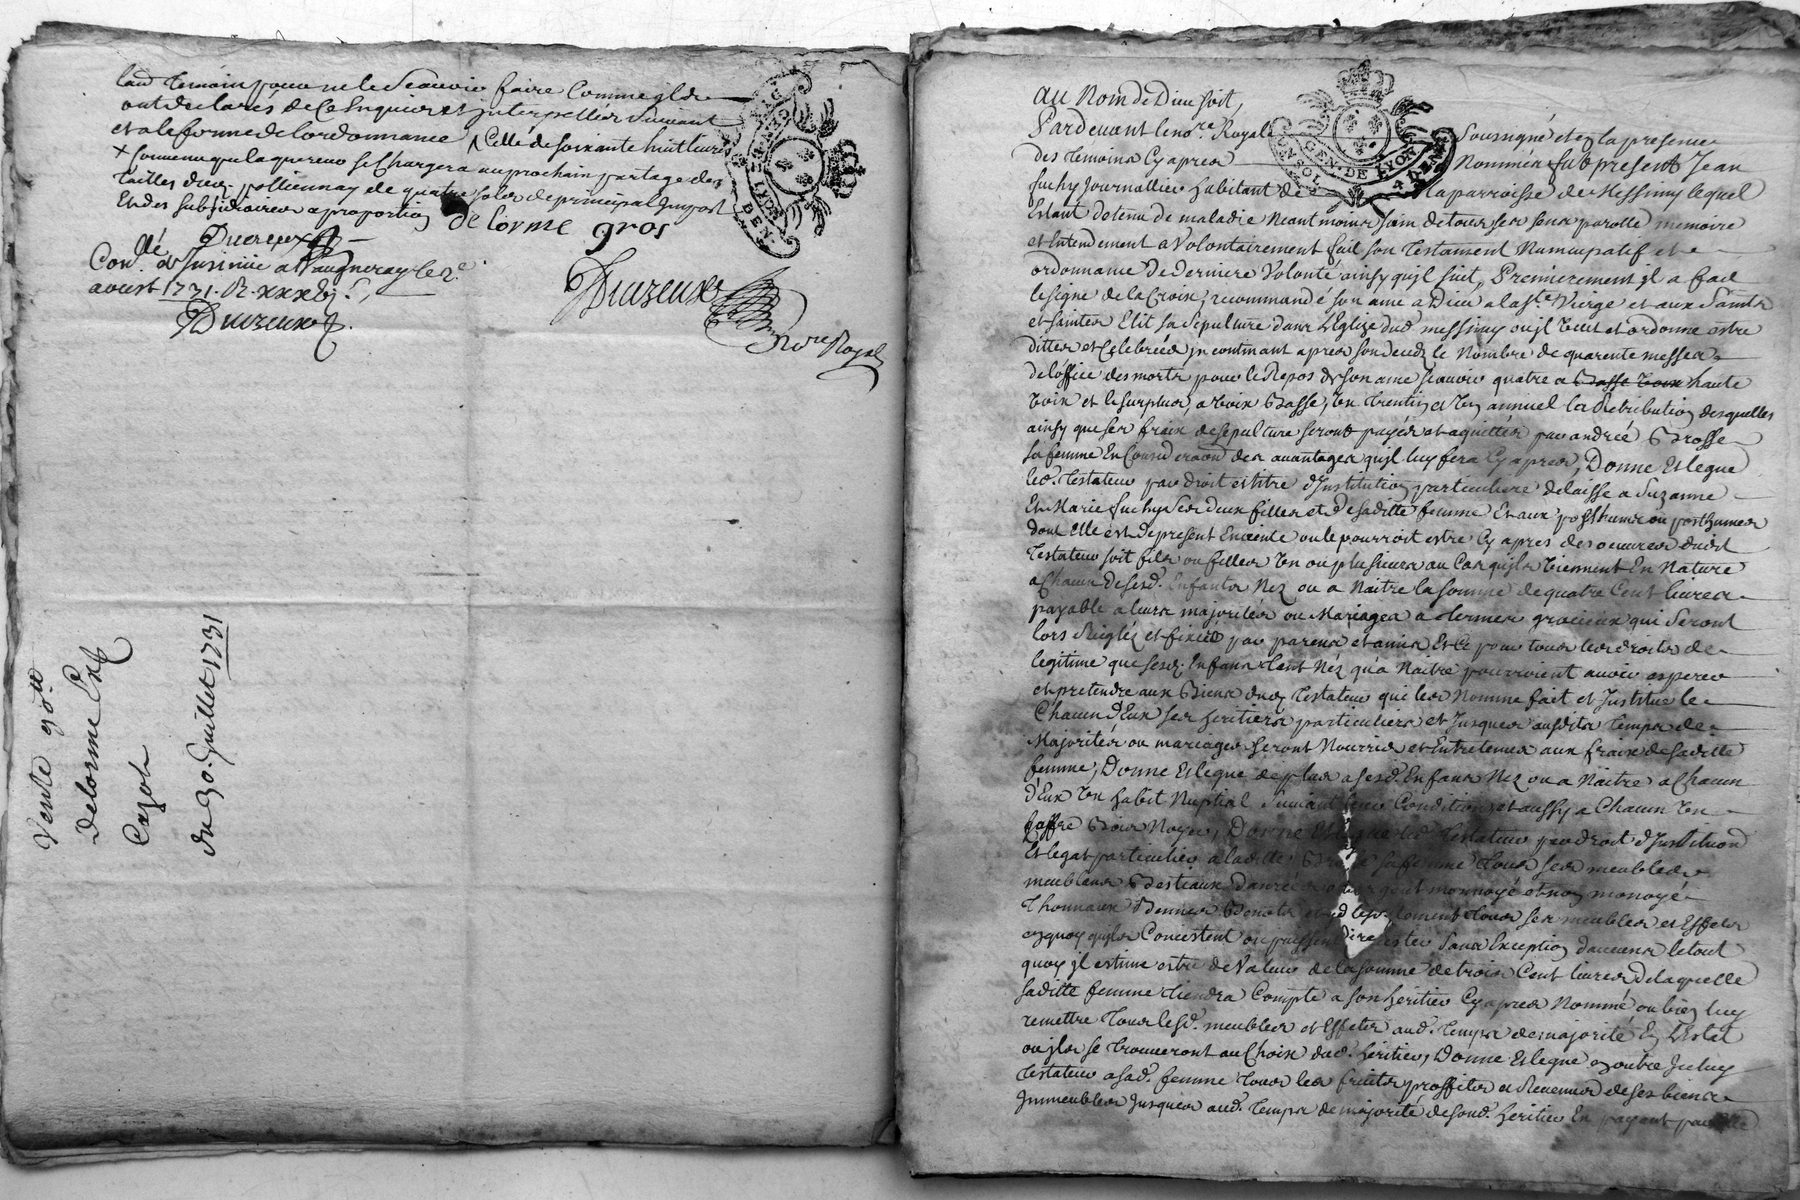 laud temoin pour ne le scavoir faire comme ils
ont declarés de ce enquis et interpellés suivant
et a le forme de lordonnance / celle de soixante huit leurs
+ convenu que laquereur se chargera au prochain partage des
tailles dud. pollionnay de quatre sols de principal impost
et des subsidiaires a proportion
de lorme gros
Ducreux
Con.llé et Insinüé a Vaugneray le 2e
aoust 1731. R. xxx
Ducreux
Ducreux
No.re Royal
GEN. DE LYON
4 DEN.
Vente 30.ll
Delorme
Cazot
du 30. Juillet 1731
Au Nom de Dieu soit,
Pardevant le no.re Royal soussigné et en la presence
des temoins cy apres Nommés fut present Jean
fuchy Journallier habitant de la parroisse de Messimy lequel
Estant detenu de maladie neantmoins sain de tous ses sens parolle memoire
et entendement a volontairement fait son testament Nuncupatif et
ordonnance de derniere volonté ainsy qu'il suit, Premierement il a fait
le signe de la croix, recommandé son ame a Dieu a la s.te Vierge et aux Saints
et saintes Elit sa sepulture dans l'Eglize dud. messimy ou il veut et ordonne estre
dittes et celebrées incontinant apres son deceds le nombre de quarente messes
de l'office des morts pour le Repos de son ame scavoir quatre a Basse voix haute
voix et le surplus, a voix Basse, un trentin et un annuel la Retribution desquelles
ainsy que ses fraix de sepulture seront payés et aquittés par andrée Brosse
sa femme En consid.eraon des avantages qu'il luy fera cy apres, Donne et legue
led. testateur par droit et titre d'Institution particuliere delaisse a Suzanne
Et Marie fuchy ses deux filles et de saditte femme et aux posthume ou posthumes
dont elle est de present Enceinte ou le pourroit estre cy apres des oeuvres dudit
testateur soit fils ou filles un ou plusieurs au cas qu'ils viennent En Nature
a chacun de sesd. Enfants Nez ou a Naitre la somme de quatre Cent livres
payable a leurs majorités ou Mariages a termes gracieux qui seront
lors Reiglez et fixéés par parens et amis et ce pour tous les droits de
legitime que sesd. Enfans tant Néz qu'a Naitre pourroient avoir esperer
et pretendre aux Biens dud. testateur qui les Nomme fait et Institue le
chacun d'Eux ses heritiers particuliers et Jusques ausdits temps de
Majorités ou mariages seront Nourris et Entretenus aux fraix de saditte
femme, Donne et legue de plus a sesd. Enfans Nez ou a Naitre a chacun
d'Eux un habit Nuptial suivant leur condition et aussy a chacun un
coffre Bois Noyer, Donne et legue led. testateur par droit d'Institution
et legat particulier a laditte Brosse sa femme tous ses meubles
meublans Bestiaux danrées argent monnoyé et non monoyé
thonnaux Bennes Benots et tous ses meubles et Effets
en quoy qu'ils Concistent ou puissent Concister sans Exception d'aucuns le tout
quoy il estime estre de Valeur de la somme de trois Cent livres de laquelle
saditte femme tiendra Compte a son heritier cy apres Nommé ou bien luy
remettre tous lesd. meubles et Effets aud. temps de majorité En l'Estat
ou ils se trouveront au choix dud. heritier, Donne et legue en outre Iceluy
testateur a sad. femme tous les fruits proffits et Revenus de ses biens
Immeubles Jusques aud. temps de majorité de sond. heritier En payant par elle